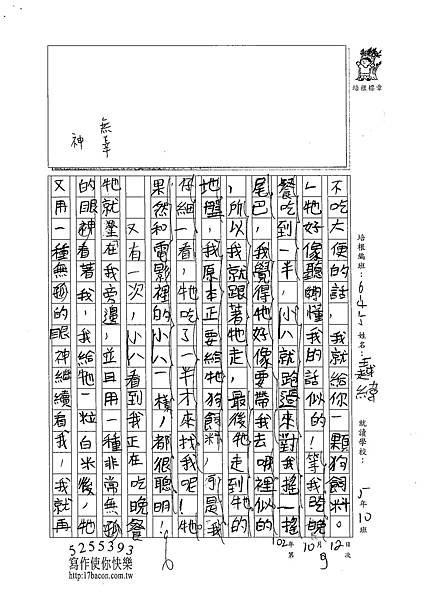 培根標章
不吃大便的話,我就給你一顆狗飼料。
」牠好像聽得懂我的話似的!等我吃晚
餐吃到一半,小八就跑過來對我搖一搖
尾巴,我覺得牠好像要帶我去哪裡似的
,所以我就跟著牠走,最後牠走到牠的
地盤,我原本正要給牠狗飼料,可是我
仔細一看,牠吃了一半才來找我呢!牠
果然和電影裡的小八一樣,都很聰明!
又有一次,小八看到我正在吃晚餐
牠就坐在我旁邊,並且用一種非常無辜
的眼神看著我,我給牠一粒白米後,牠
又用一種無辜的眼神繼續看我,我就再
無辜
神
培根編班:645
姓名:
緯
就讀學校:
5年10班
102年10月12日
第9次
5255393
寫作使你快樂
http://17bacon.com.tw